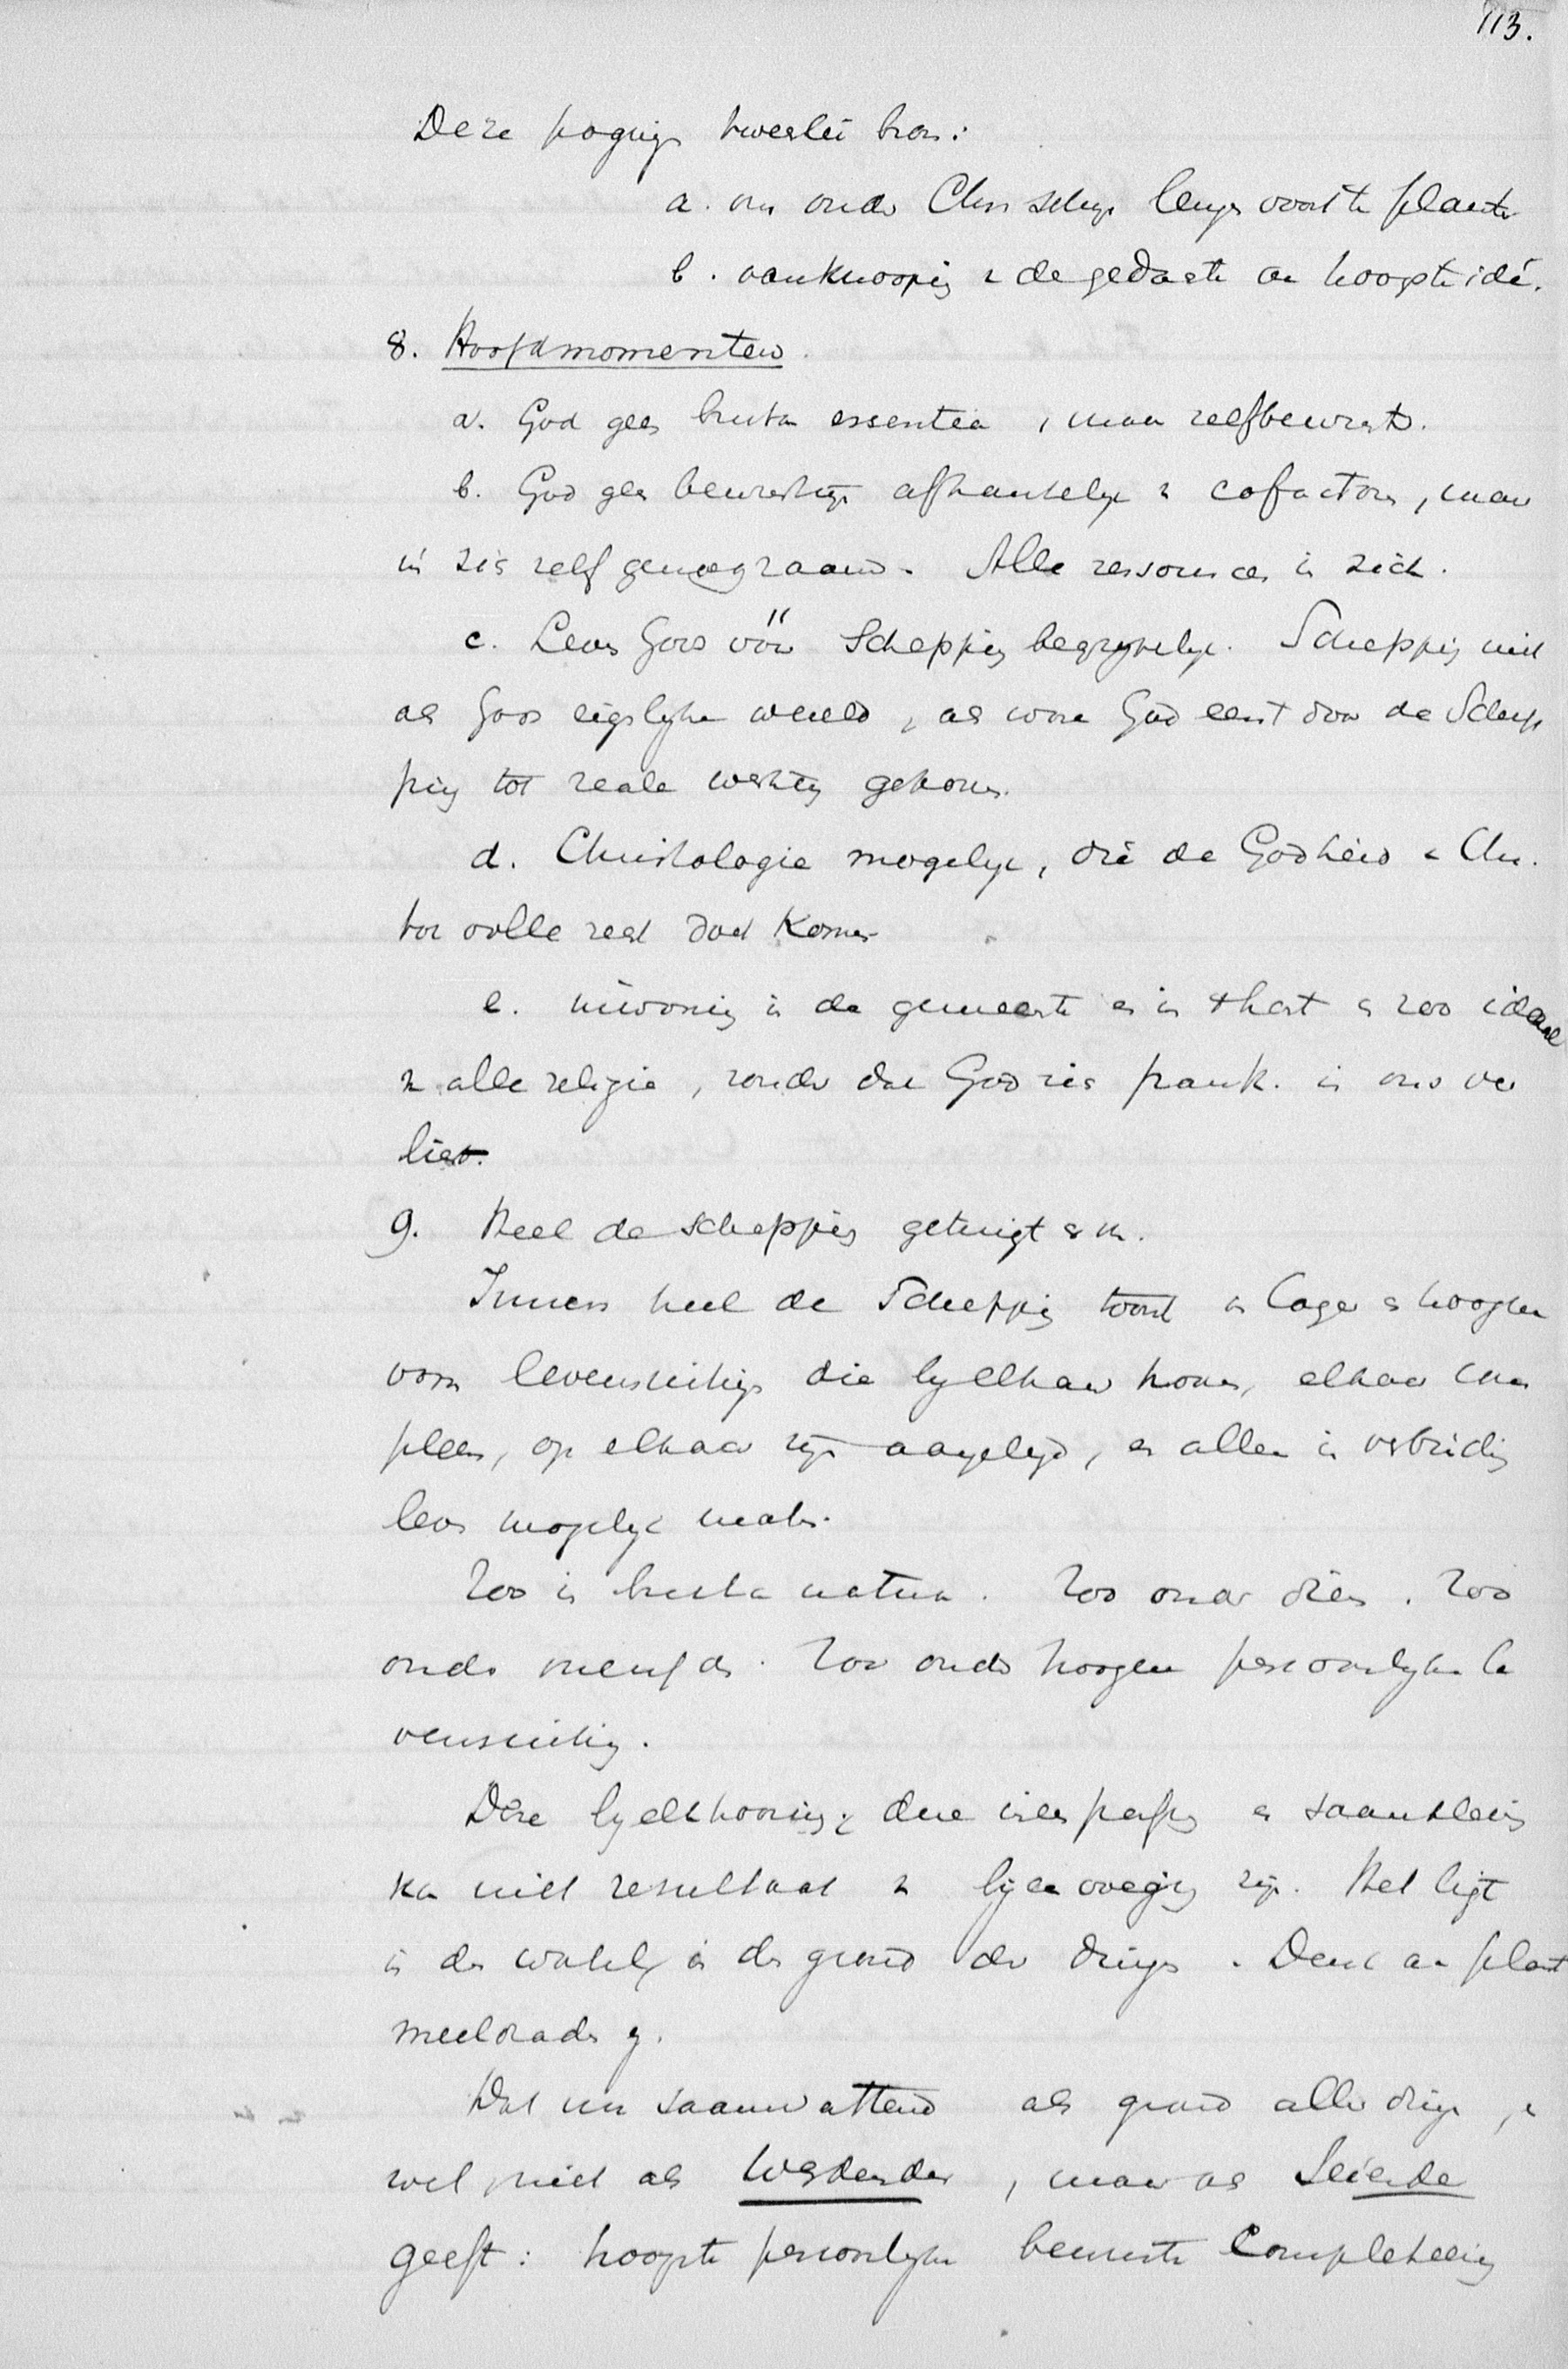 113.
Deze pogings tweeërlei bron:
a. om onder Chr. schijn voort te planten
b. aanknooping de gedachte aan hoogste idé.
8. Hoofdmomenten.
a. God geen bruta essentia, maar zelfbewust.
b. God geen bewustzijn afhankelijk cofactoren, maar
in zich zelf genoegzaam. Alle ressources in zich.
c. Leven Gods vóór Schepping begrijpelijk. Schepping niet
als Gods eigenlijke wereld, als ware God eerst door de Schep
ping tot reale werking gekomen.
d. Christologie mogelijk, die de Godheid Chr.
tot volle recht doet komen
e. inwoning in de gemeente en in 't hart en zoo ideaal
alle religie, zonder dat God zich in ons ver
liest.
9. Heel de schepping getuigt
Immers heel de Schepping toont in lager en hooger
vorm levensuitings die bij elkaar horen, elkaar com
pleer, op elkaar zijn aangelegd, en alleen in verbinding
leven mogelijk maken.
Zoo in bruta natura. Zoo onder dieren. Zoo
onder mensch. Zoo onder hoogere persoonlijke le
vensuiting.
Deze bijeenhooring, deze en samenklein
kan niet resultaat bijeenvoeging zijn. Het ligt
in de wortel, in de grond der dingen. Denk aan plant
meeldraden
Dat nu saamvattend als grond aller dingen,
wel niet als Werdender, maar als Seiende
geeft: hoogste persoonlijke bewuste Completeering